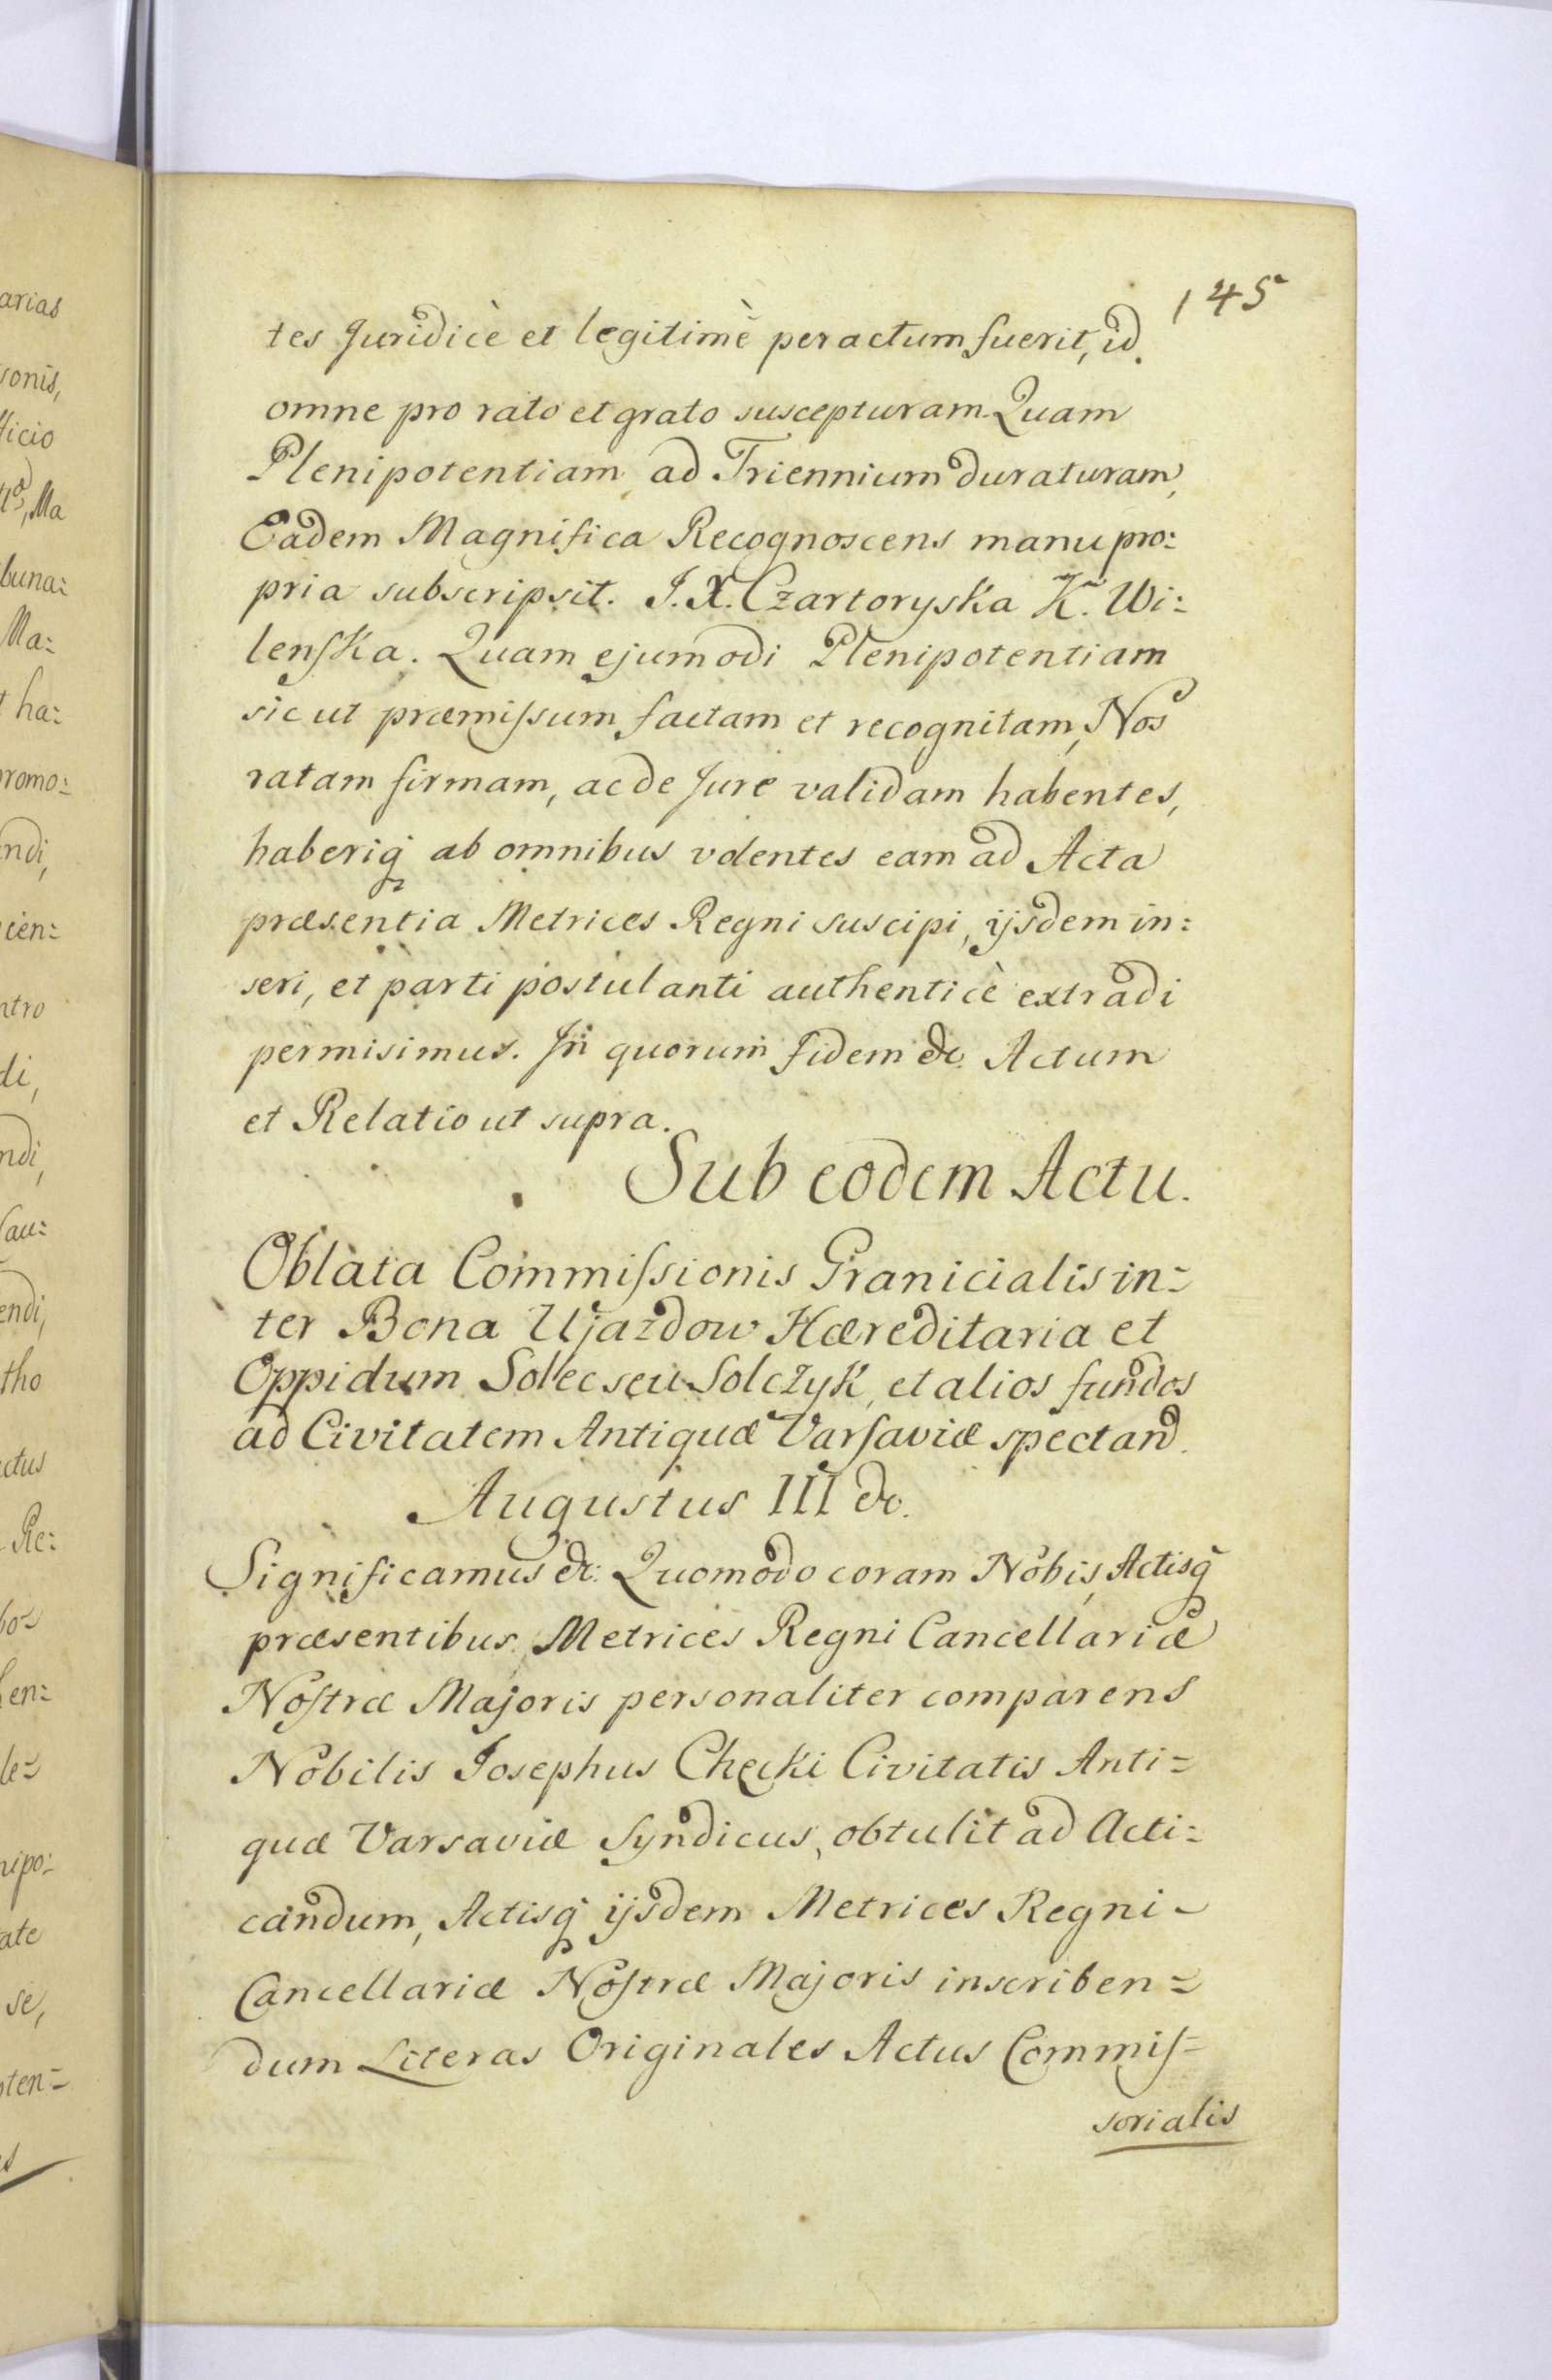 145
tes Juridicè et legitimè peractum fuerit, id
omne pro rato et grato suscepturam. Quam
Plenipotentiam ad Triennium duraturam,
Eadem Magnifica Recognoscens manu pro:
pria subscripsit. J. X. Czartoryska K. Wi:
lenſka. Quam ejumodi Plenipotentiam
sic ut præmiſsum factam et recognitam, Nos
ratam firmam, ac de Jure validam habentes,
haberiq́ ab omnibus volentes eam ad Acta
præsentia Metrices Regni suscipi, ijsdem in:
seri, et parti postulanti authenticè extradi
permisimus. Jn quorum fidem &c. Actum
et Relatio ut supra.
Sub eodem Actu.
Oblata Commiſsionis Granicialis in=
ter Bona Ujazdow Hæreditaria et
Oppidum Solec seu Solczyk, et alios fundos
ad Civitatem Antiquæ Varſaviæ spectand.
Augustus III &c.
Significamus &c: Quomodo coram Nobis, Actisq́
præsentibus Metrices Regni Cancellariæ
Noſtræ Majoris personaliter comparens
Nobilis Josephus Checki Civitatis Anti=
quæ Varsaviæ Syndicus, obtulit ad Acti:
candum, Actisq́ ijsdem Metrices Regni -
Cancellariæ Noſtræ Majoris inscriben=
dum Literas Originales Actus Commiſ=
sorialis
arias
sonis,
fficio
Ma
buna:
Ma:
ha:
promo:
ndi,
cien:
ntro
di,
ndi,
endi,
tho
ctus
Re:
en:
le=
nipo:
ate
se,
ten=